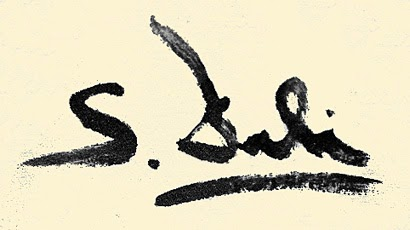 S. Dali